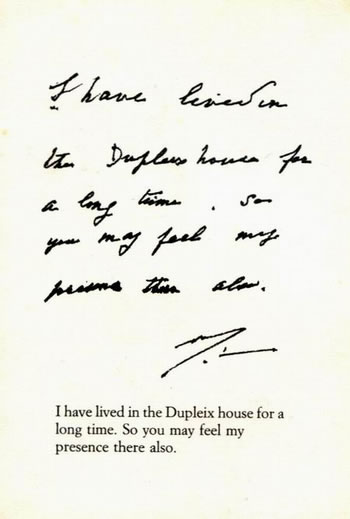 I have lived in
the Dupleix house for
a long time. So
you may feel my
presence there also.
I have lived in the Dupleix house for a
long time. So you may feel my
presence there also.